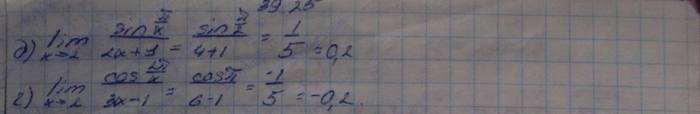 39 25
д) lim x→2 sin π/x / 2x+1 = sin π/2 / 4+1 = 1/5 = 0,2
г) lim x→2 cos 2π/x / 3x-1 = cos π / 6-1 = -1/5 = -0,2.